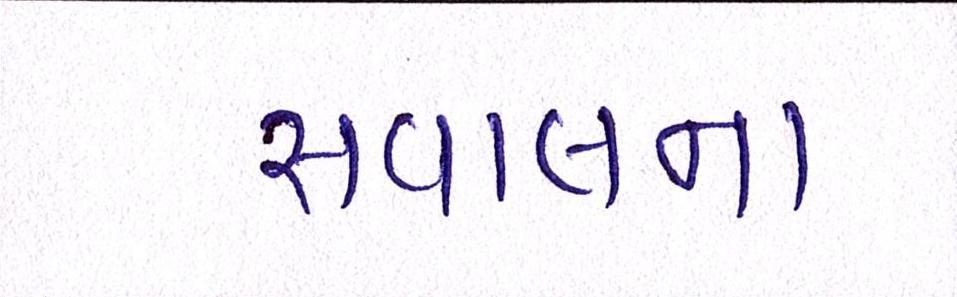 સવાલના